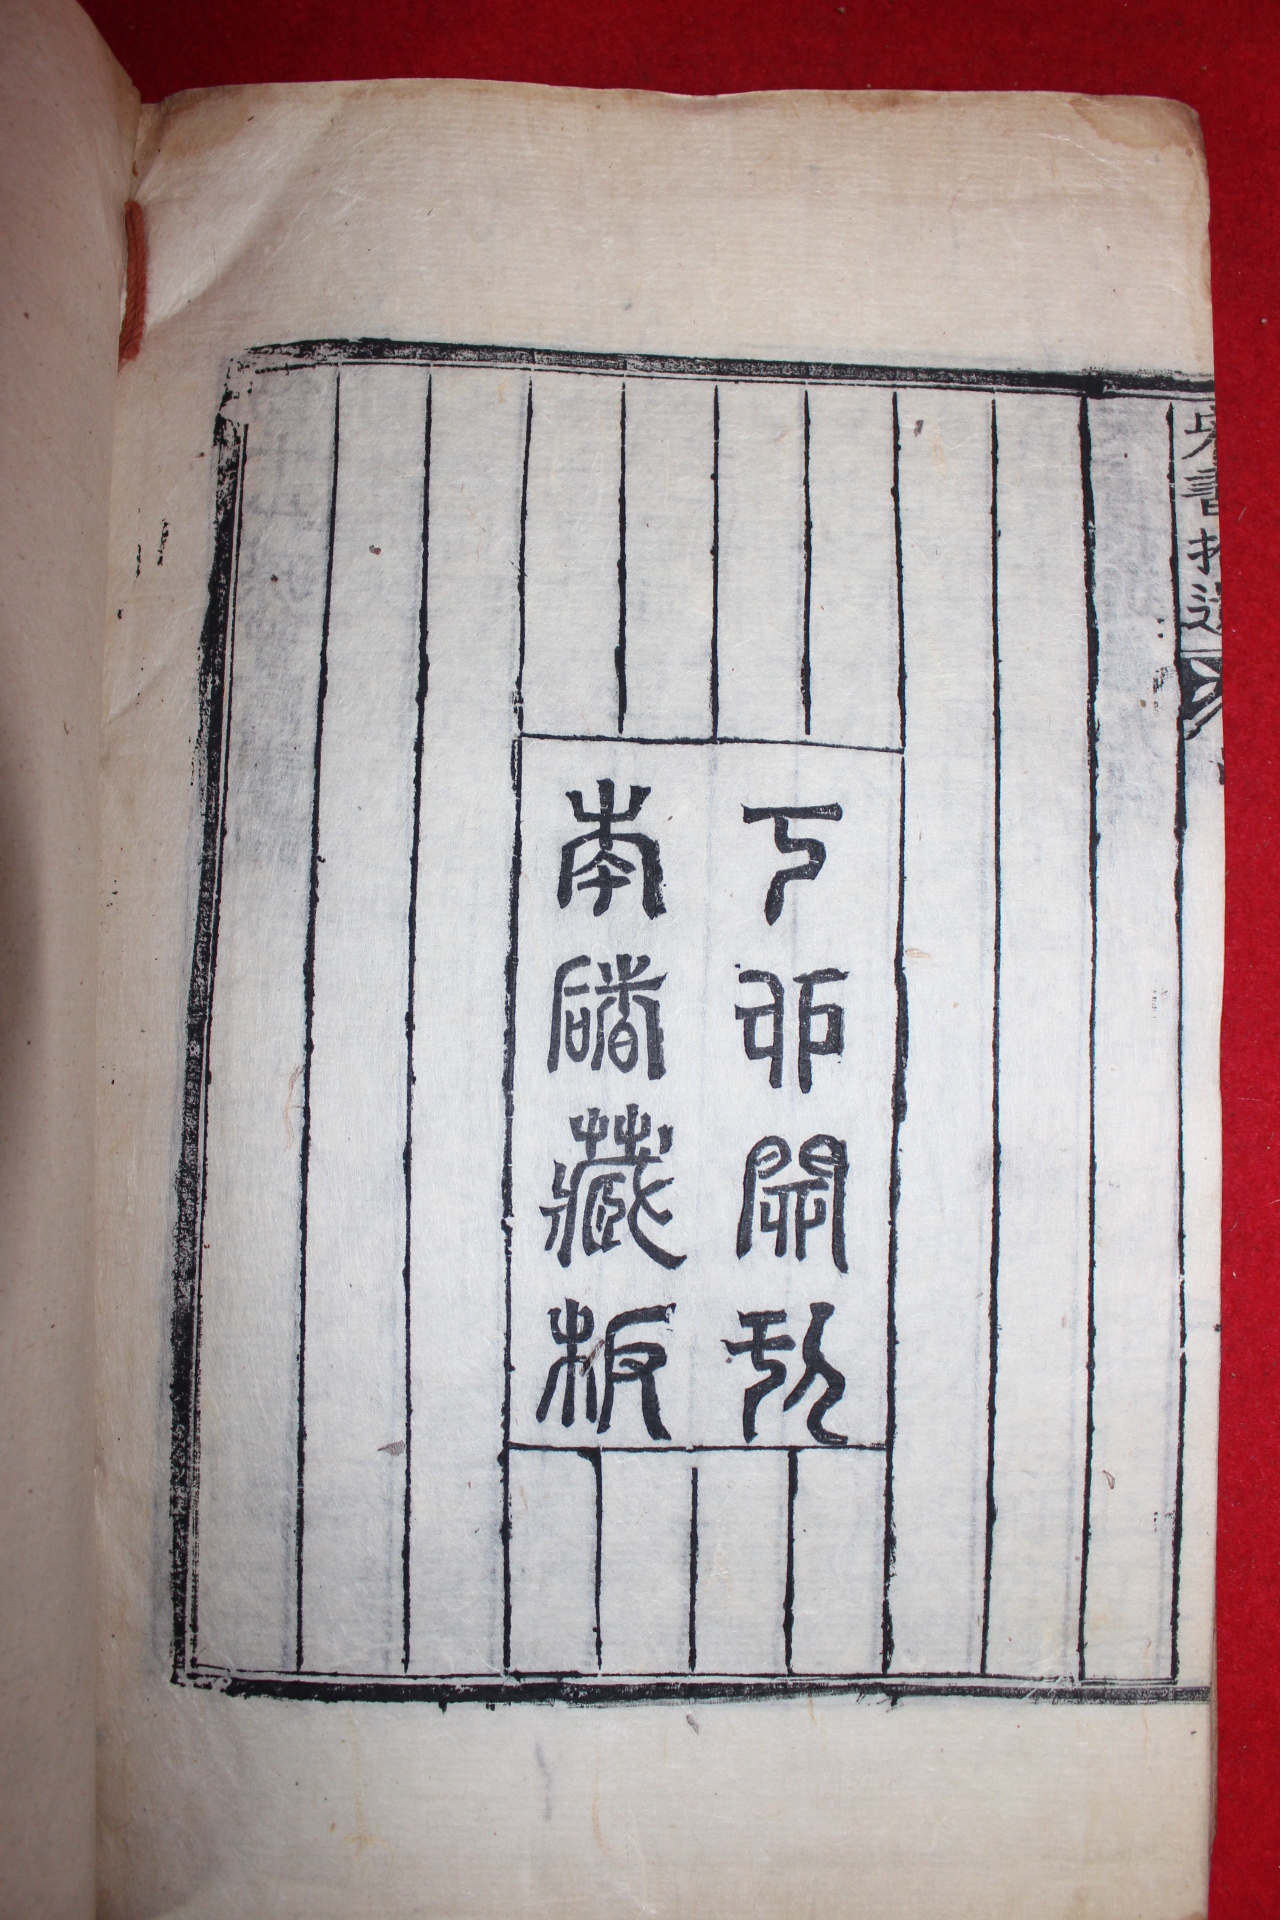 丁卯開刊
南藏板
書抄選